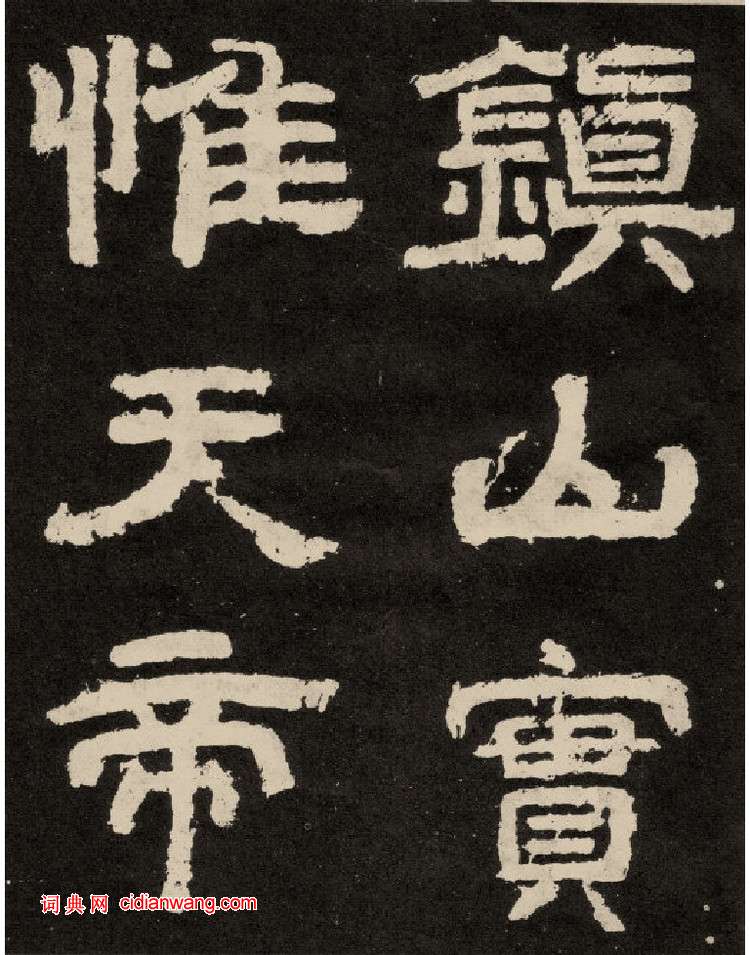 鎮山實
惟天帝
词典网 cidianwang.com